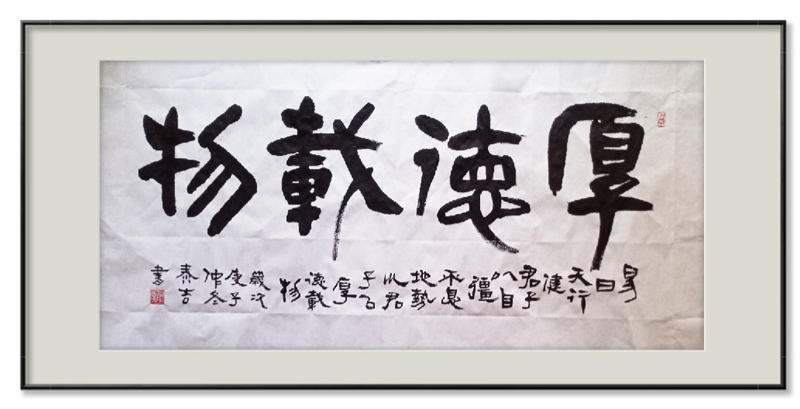 厚德載物
易
曰
天行
健
君子
以自
彊
不息
地勢
巛君
子以
厚
德載
物
歲次
庚子
仲冬
泰吉
書